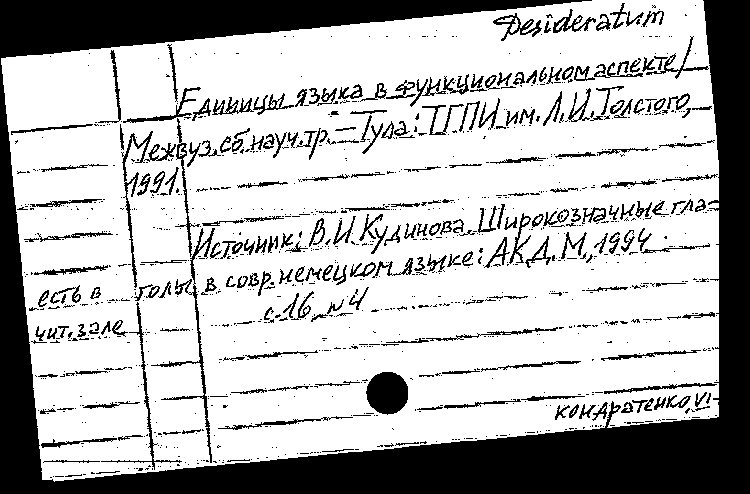 Desideratum
Единицы языка в функциональном аспекте/
Межвуз.сб.науч.тр.–Тула: ТГПИ им. Л.И.Толстого,
1991.
Источник: В.И Кудинова. Широкозначные гла-
голы в совр.немецком языке: АКД. М., 1994.
с.16, N4
есть в
чит.зале
Кондратенко, VI